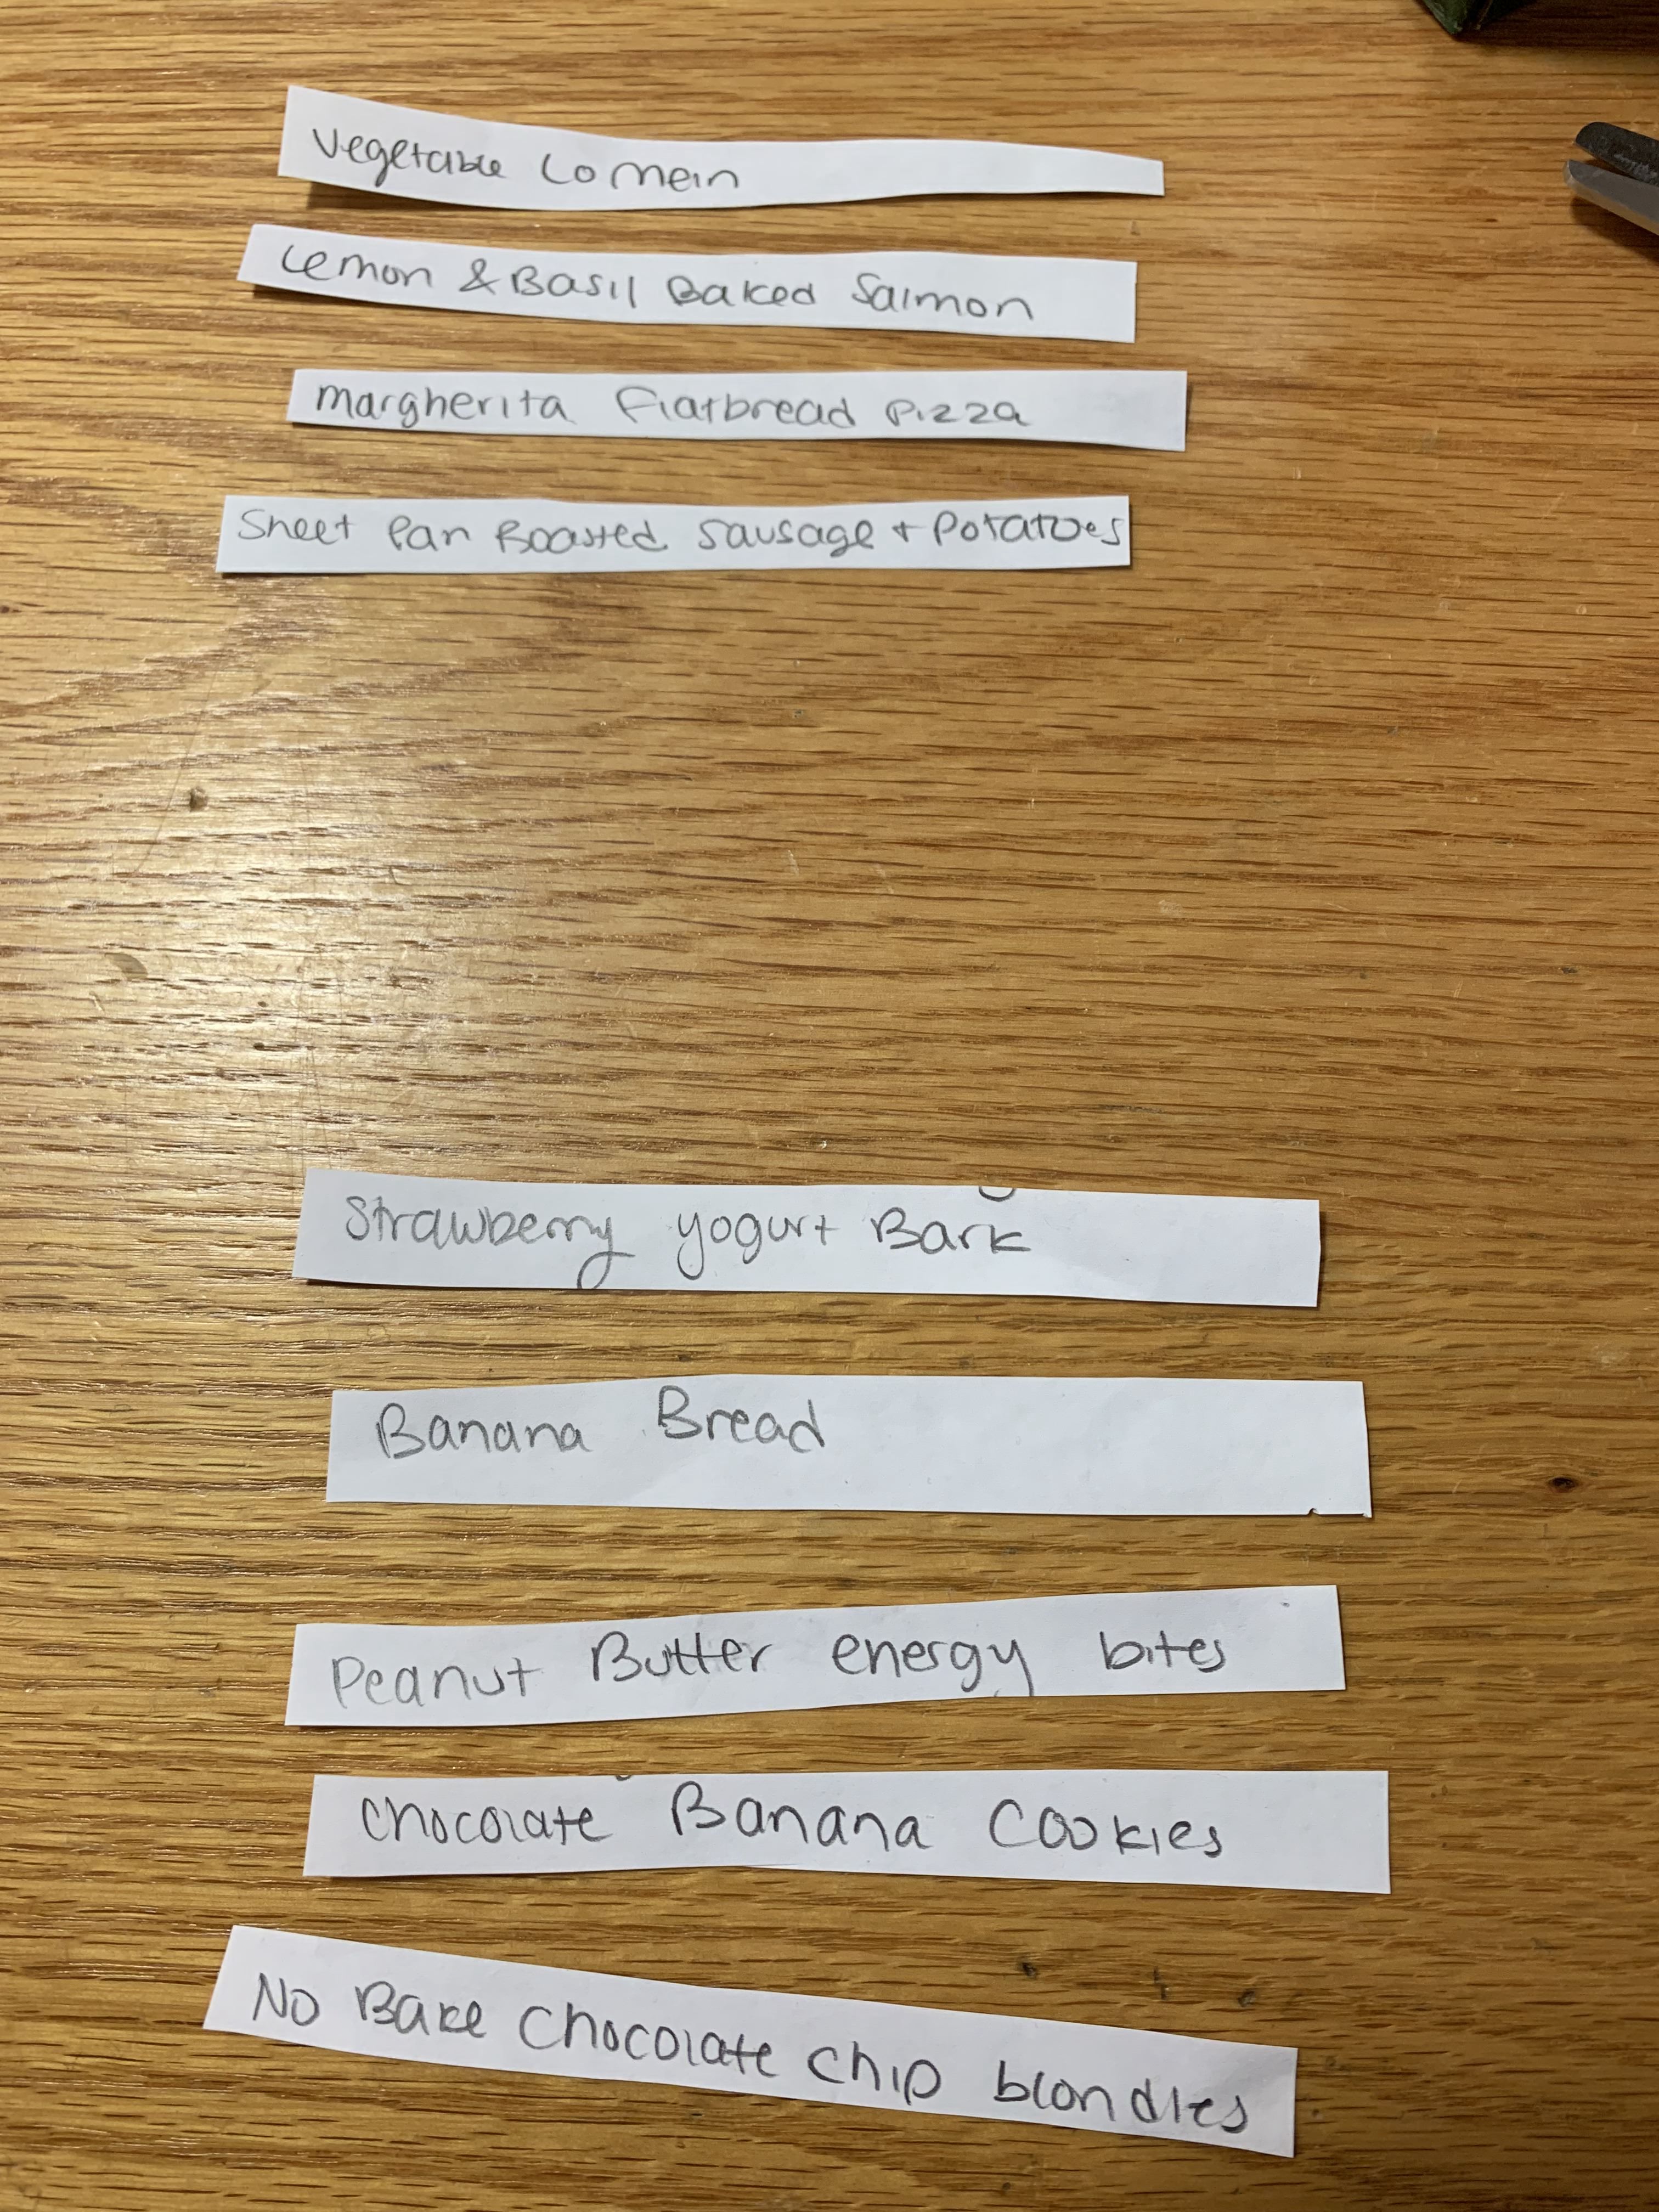 Vegetable Lo Mein
Lemon & Basil Baked Salmon
Margherita Flatbread Pizza
Sheet Pan Roasted Sausage + Potatoes
Strawberry yogurt Bark
Banana Bread
Peanut Butter energy bites
Chocolate Banana Cookies
No Bake Chocolate Chip blondies